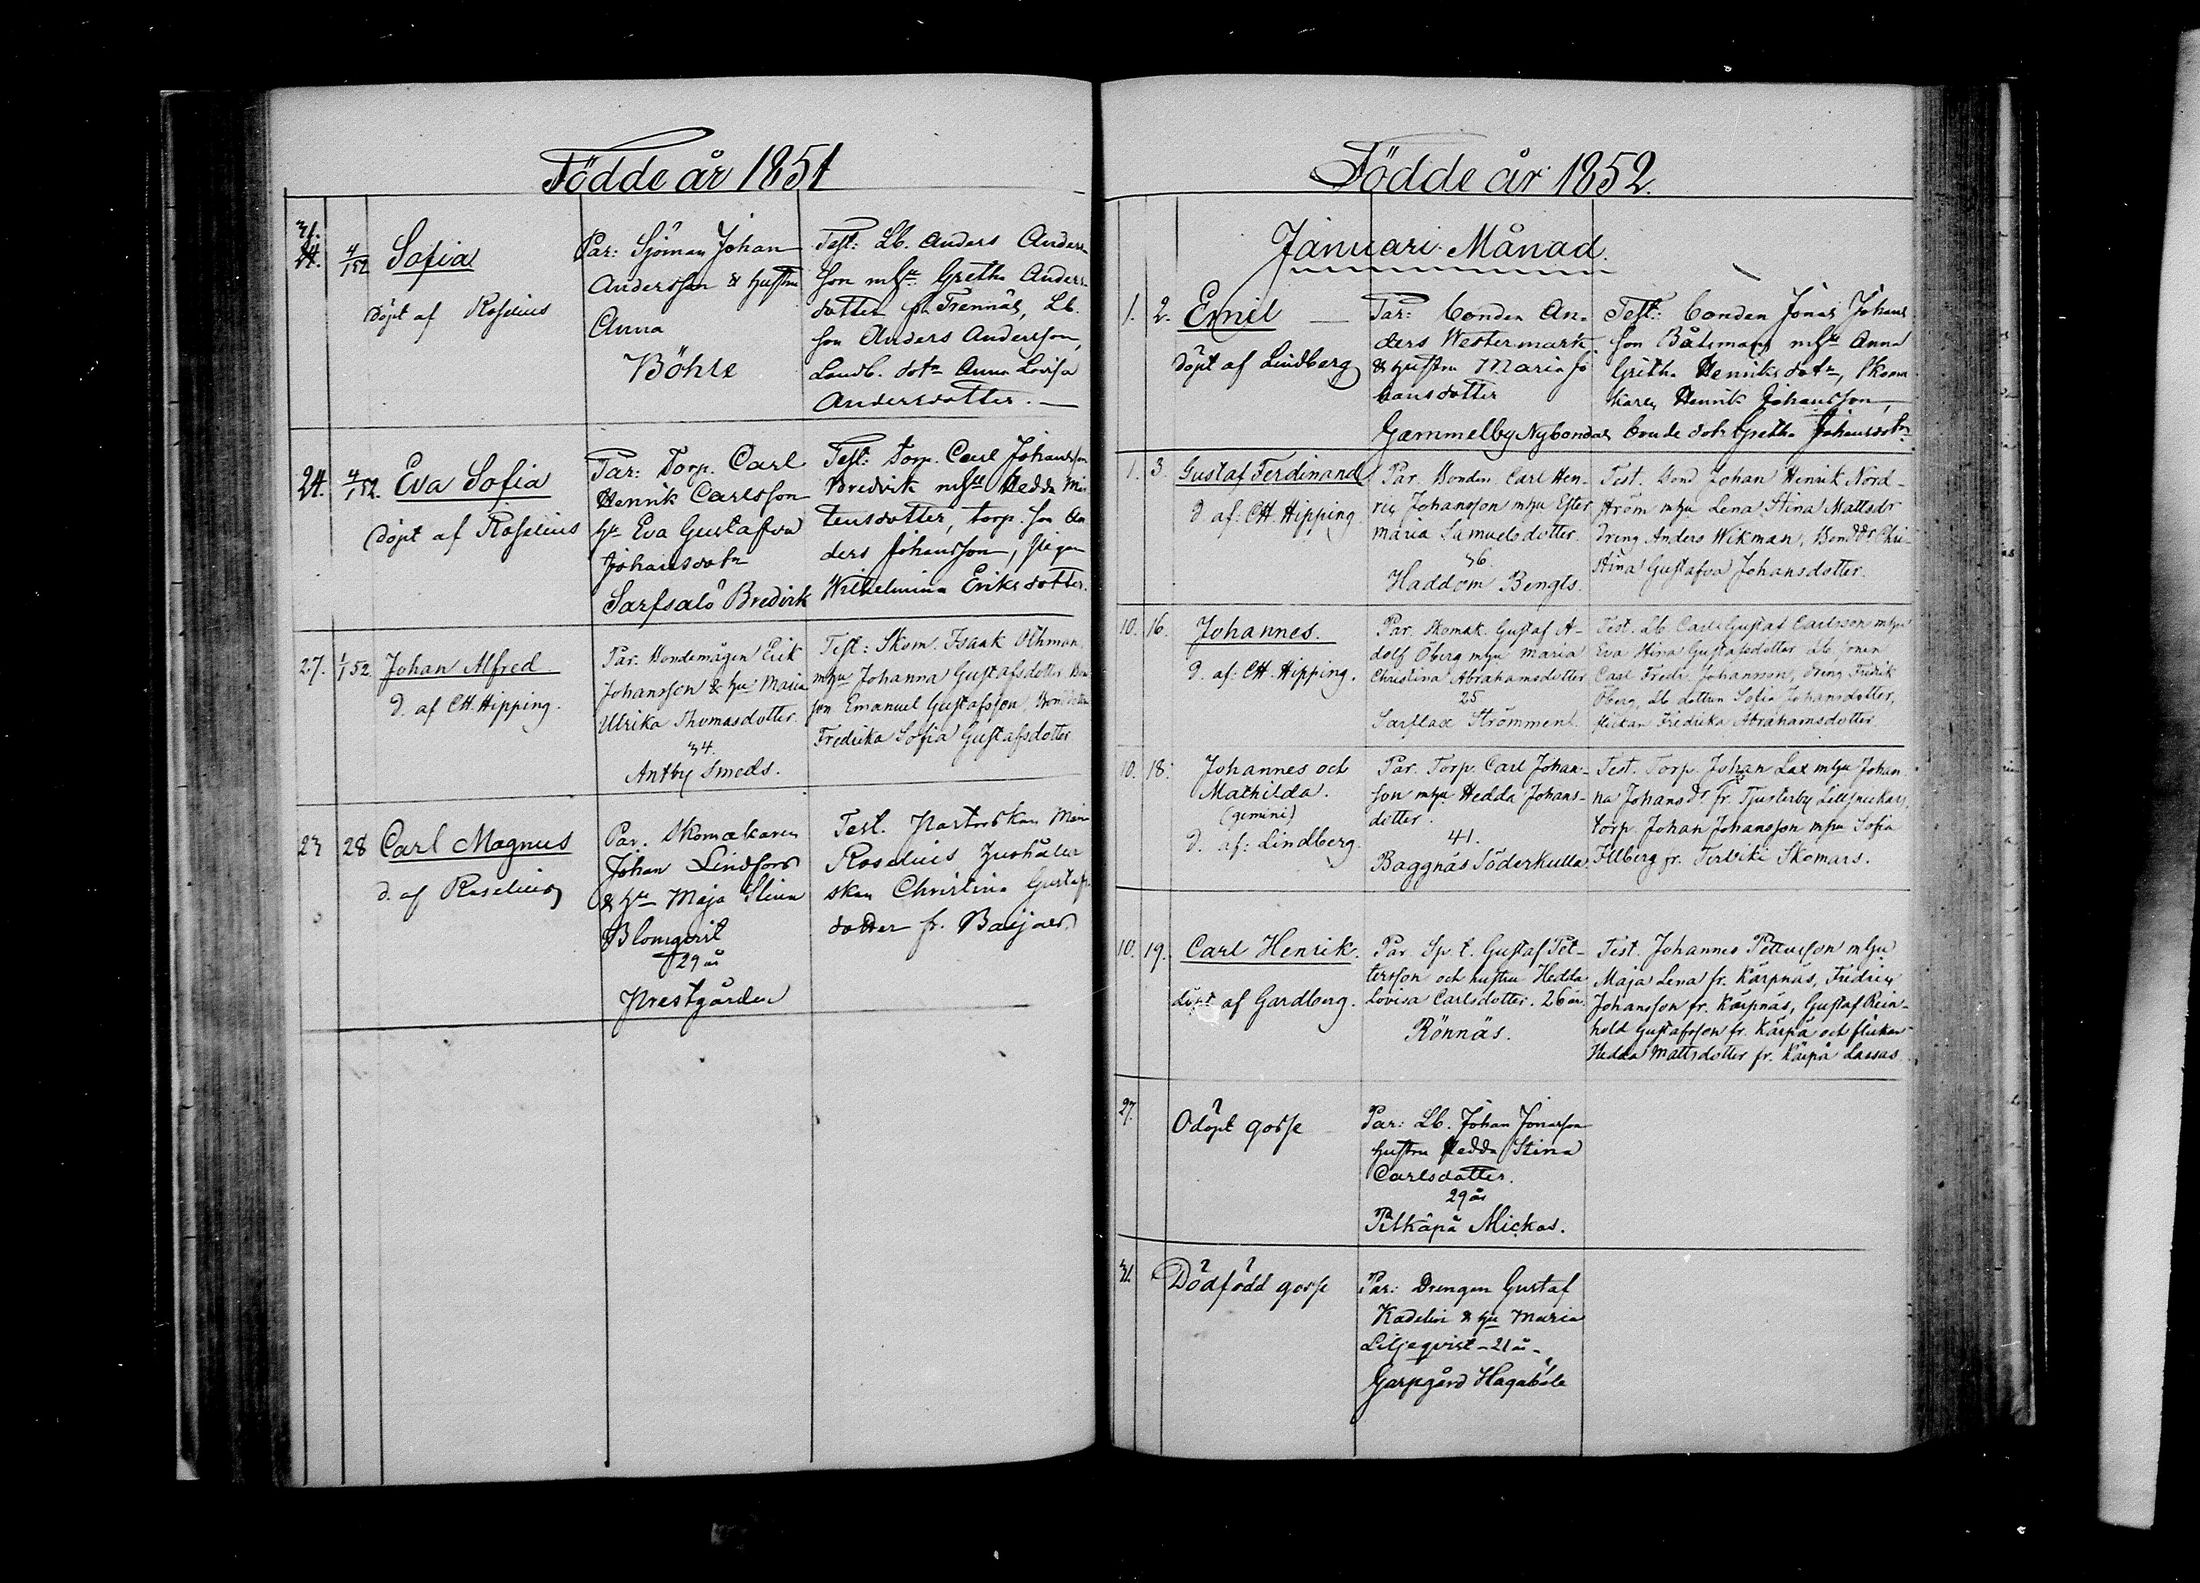 Födde år 1851
31.
24.
4/1 52
Sofia
döpt af Roselius
Par: Sjöman Johan
Andersson & hustru
Anna
Böhle
Test: Lb. Anders Anders
son mhu Greta Anders
dotter fr. Trennäs, Lb.
son Anders Andersson,
Landb. dotr Anna Lovisa
Andersdotter. —
24. 4/1 52. Eva Sofia
döpt af Roselius
Par: Torp. Carl
Henrik Carlsson
hu Eva Gustafva
Johansdotr
Sarfsalö Bredvik
Test: Torp. Carl Johansson
Bredvik mhu Hedda Mår
tensdotter, torp. son An
ders Johansson, pigan
Wilhelmina Eriksdotter.
27. 1/1 52 Johan Alfred
d. af CH. Hipping.
Par. Bondemågen Erik
Johansson & hu Maria
Ulrika Thomasdotter.
34.
Antby Smeds.
Test: Skom. Isaak Öhman
mhu Johanna Gustafsdotter Bon
son Emanuel Gustafsson, Bond dotter
Fredrika Sofia Gustafsdotter
23 28 Carl Magnus
d. af Roselius
Par. Skomakaren
Johan Lindfors
& hu Maja Stina
Blomqvist
29 år
Prestgården
Test. Pastorskan Mina
Roselius hushåller
skan Christina Gustafs
dotter fr. Baijars
Födde år 1852.
Januari Månad.
1. 2. Emil —
döpt af Lindberg
Par: bonden An-
ders Westermark
& hustru Maria Jo
hansdotter
Gammelby Nybondas
Test: bonden Jonas Johans
son Båtsmans mhu Anna
Gretha Henriksdotr, Skoma
karen Henrik Johansson,
bonde dotr Gretha Johansdotr.
1. 3. Gustaf Ferdinand
d. af: CH. Hipping.
Par. Bonden Carl Hen-
ric Johansson mhu Ester
Maria Samuelsdotter.
36.
Haddom Bengts.
Test. Bond Johan Henrik Nord-
ström mhu Lena Stina Mattsdr
Dreng Anders Wikman, Bond dr Chri-
stina Gustafva Johansdotter.
10. 16. Johannes.
d. af: CH. Hipping.
Par. Skomak. Gustaf A-
dolf Öberg mhu Maria
Christina Abrahamsdotter
25
Sarflax Strömmen.
Test. Lb. Carl Gustaf Carlsson mhu
Eva Stina Gustafsdotter Lb. sonen
Carl Fredr. Johansson, Dreng Fredrik
Öberg, Lb dottren Sofia Johansdotter,
flickan Fredrika Abrahamsdotter
10. 18. Johannes och
Mathilda.
(gemini)
d. af: Lindberg.
Par. Torp. Carl Johan-
son mhu Hedda Johans-
dotter.
41.
Baggnäs Söderkulla.
Test. Torp. Johan Lax mhu Johan
na Johansdr fr. Tjusterby Lillsnickars,
torp. Johan Johansson mhu Sofia
Illberg fr. Tervike Skomars.
10. 19. Carl Henrik.
döpt af Gardberg.
Par. Sp. t. Gustaf Pet-
tersson och hustru Hedda
Lovisa Carlsdotter. 26 år.
Rönnäs.
Test. Johannes Pettersson mhu
Maja Lena fr. Kärpnäs, Fredric
Johansson fr. Kärpnäs, Gustaf Rein-
hold Gustafsson fr. Kärpä och flickan
Hedda Mattsdotter fr. Kärpä Lassas.
27. Odöpt gosse
Par: Lb. Johan Jonasson
hustru Hedda Stina
Carlsdotter.
29 år
Pitkäpä Mickas.
31. Dödfödd gosse
Par: Drengen Gustaf
Kadelin & hu Maria
Liljeqvist - 21 år -
Garpgård Hagaböle